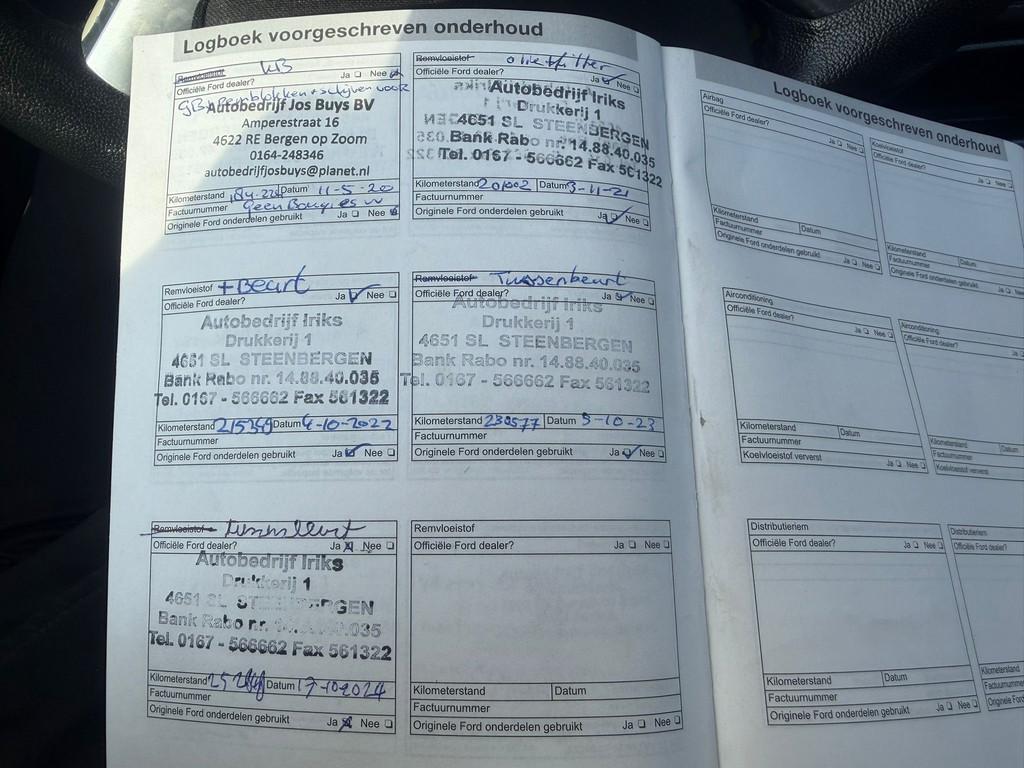 Logboek voorgeschreven onderhoud
Remvloeistof KB
Officiële Ford dealer? Ja Nee
Autobedrijf Jos Buys BV
Amperestraat 16
4622 RE Bergen op Zoom
0164-248346
autobedrijfjosbuys@planet.nl
Kilometerstand Datum 11-5-20
Factuurnummer
Originele Ford onderdelen gebruikt Ja Nee
Remvloeistof olie+filter
Officiële Ford dealer? Ja Nee
Autobedrijf Iriks
Drukkerij 1
4651 SL STEENBERGEN
Bank Rabo nr. 14.88.40.035
Tel. 0167 - 566662 Fax 561322
Kilometerstand 201002 Datum 3-11-21
Factuurnummer
Originele Ford onderdelen gebruikt Ja Nee
Remvloeistof + Beurt
Officiële Ford dealer? Ja Nee
Autobedrijf Iriks
Drukkerij 1
4651 SL STEENBERGEN
Bank Rabo nr. 14.88.40.035
Tel. 0167 - 566662 Fax 561322
Kilometerstand Datum 4-10-2022
Factuurnummer
Originele Ford onderdelen gebruikt Ja Nee
Remvloeistof Tussenbeurt
Officiële Ford dealer? Ja Nee
Autobedrijf Iriks
Drukkerij 1
4651 SL STEENBERGEN
Bank Rabo nr. 14.88.40.035
Tel. 0167 - 566662 Fax 561322
Kilometerstand 230577 Datum 5-10-23
Factuurnummer
Originele Ford onderdelen gebruikt Ja Nee
Remvloeistof
Officiële Ford dealer? Ja Nee
Autobedrijf Iriks
Drukkerij 1
4651 SL STEENBERGEN
Bank Rabo nr.
Tel. 0167 - 566662 Fax 561322
Kilometerstand Datum 17-10-2024
Factuurnummer
Originele Ford onderdelen gebruikt Ja Nee
Remvloeistof
Officiële Ford dealer? Ja Nee
Kilometerstand Datum
Factuurnummer
Originele Ford onderdelen gebruikt Ja Nee
Logboek voorgeschreven onderhoud
Airbag
Officiële Ford dealer? Ja Nee
Kilometerstand Datum
Factuurnummer
Originele Ford onderdelen gebruikt Ja Nee
Koelvloeistof
Officiële Ford dealer? Ja Nee
Kilometerstand Datum
Factuurnummer
Originele Ford onderdelen gebruikt
Airconditioning
Officiële Ford dealer? Ja Nee
Kilometerstand Datum
Factuurnummer
Koelvloeistof ververst Ja Nee
Airconditioning
Officiële Ford dealer?
Kilometerstand Datum
Factuurnummer
Koelvloeistof ververst
Distributieriem
Officiële Ford dealer? Ja Nee
Kilometerstand Datum
Factuurnummer
Originele Ford onderdelen gebruikt Ja Nee
Distributieriem
Officiële Ford
Kilometerstand
Factuurnummer
Originele Ford